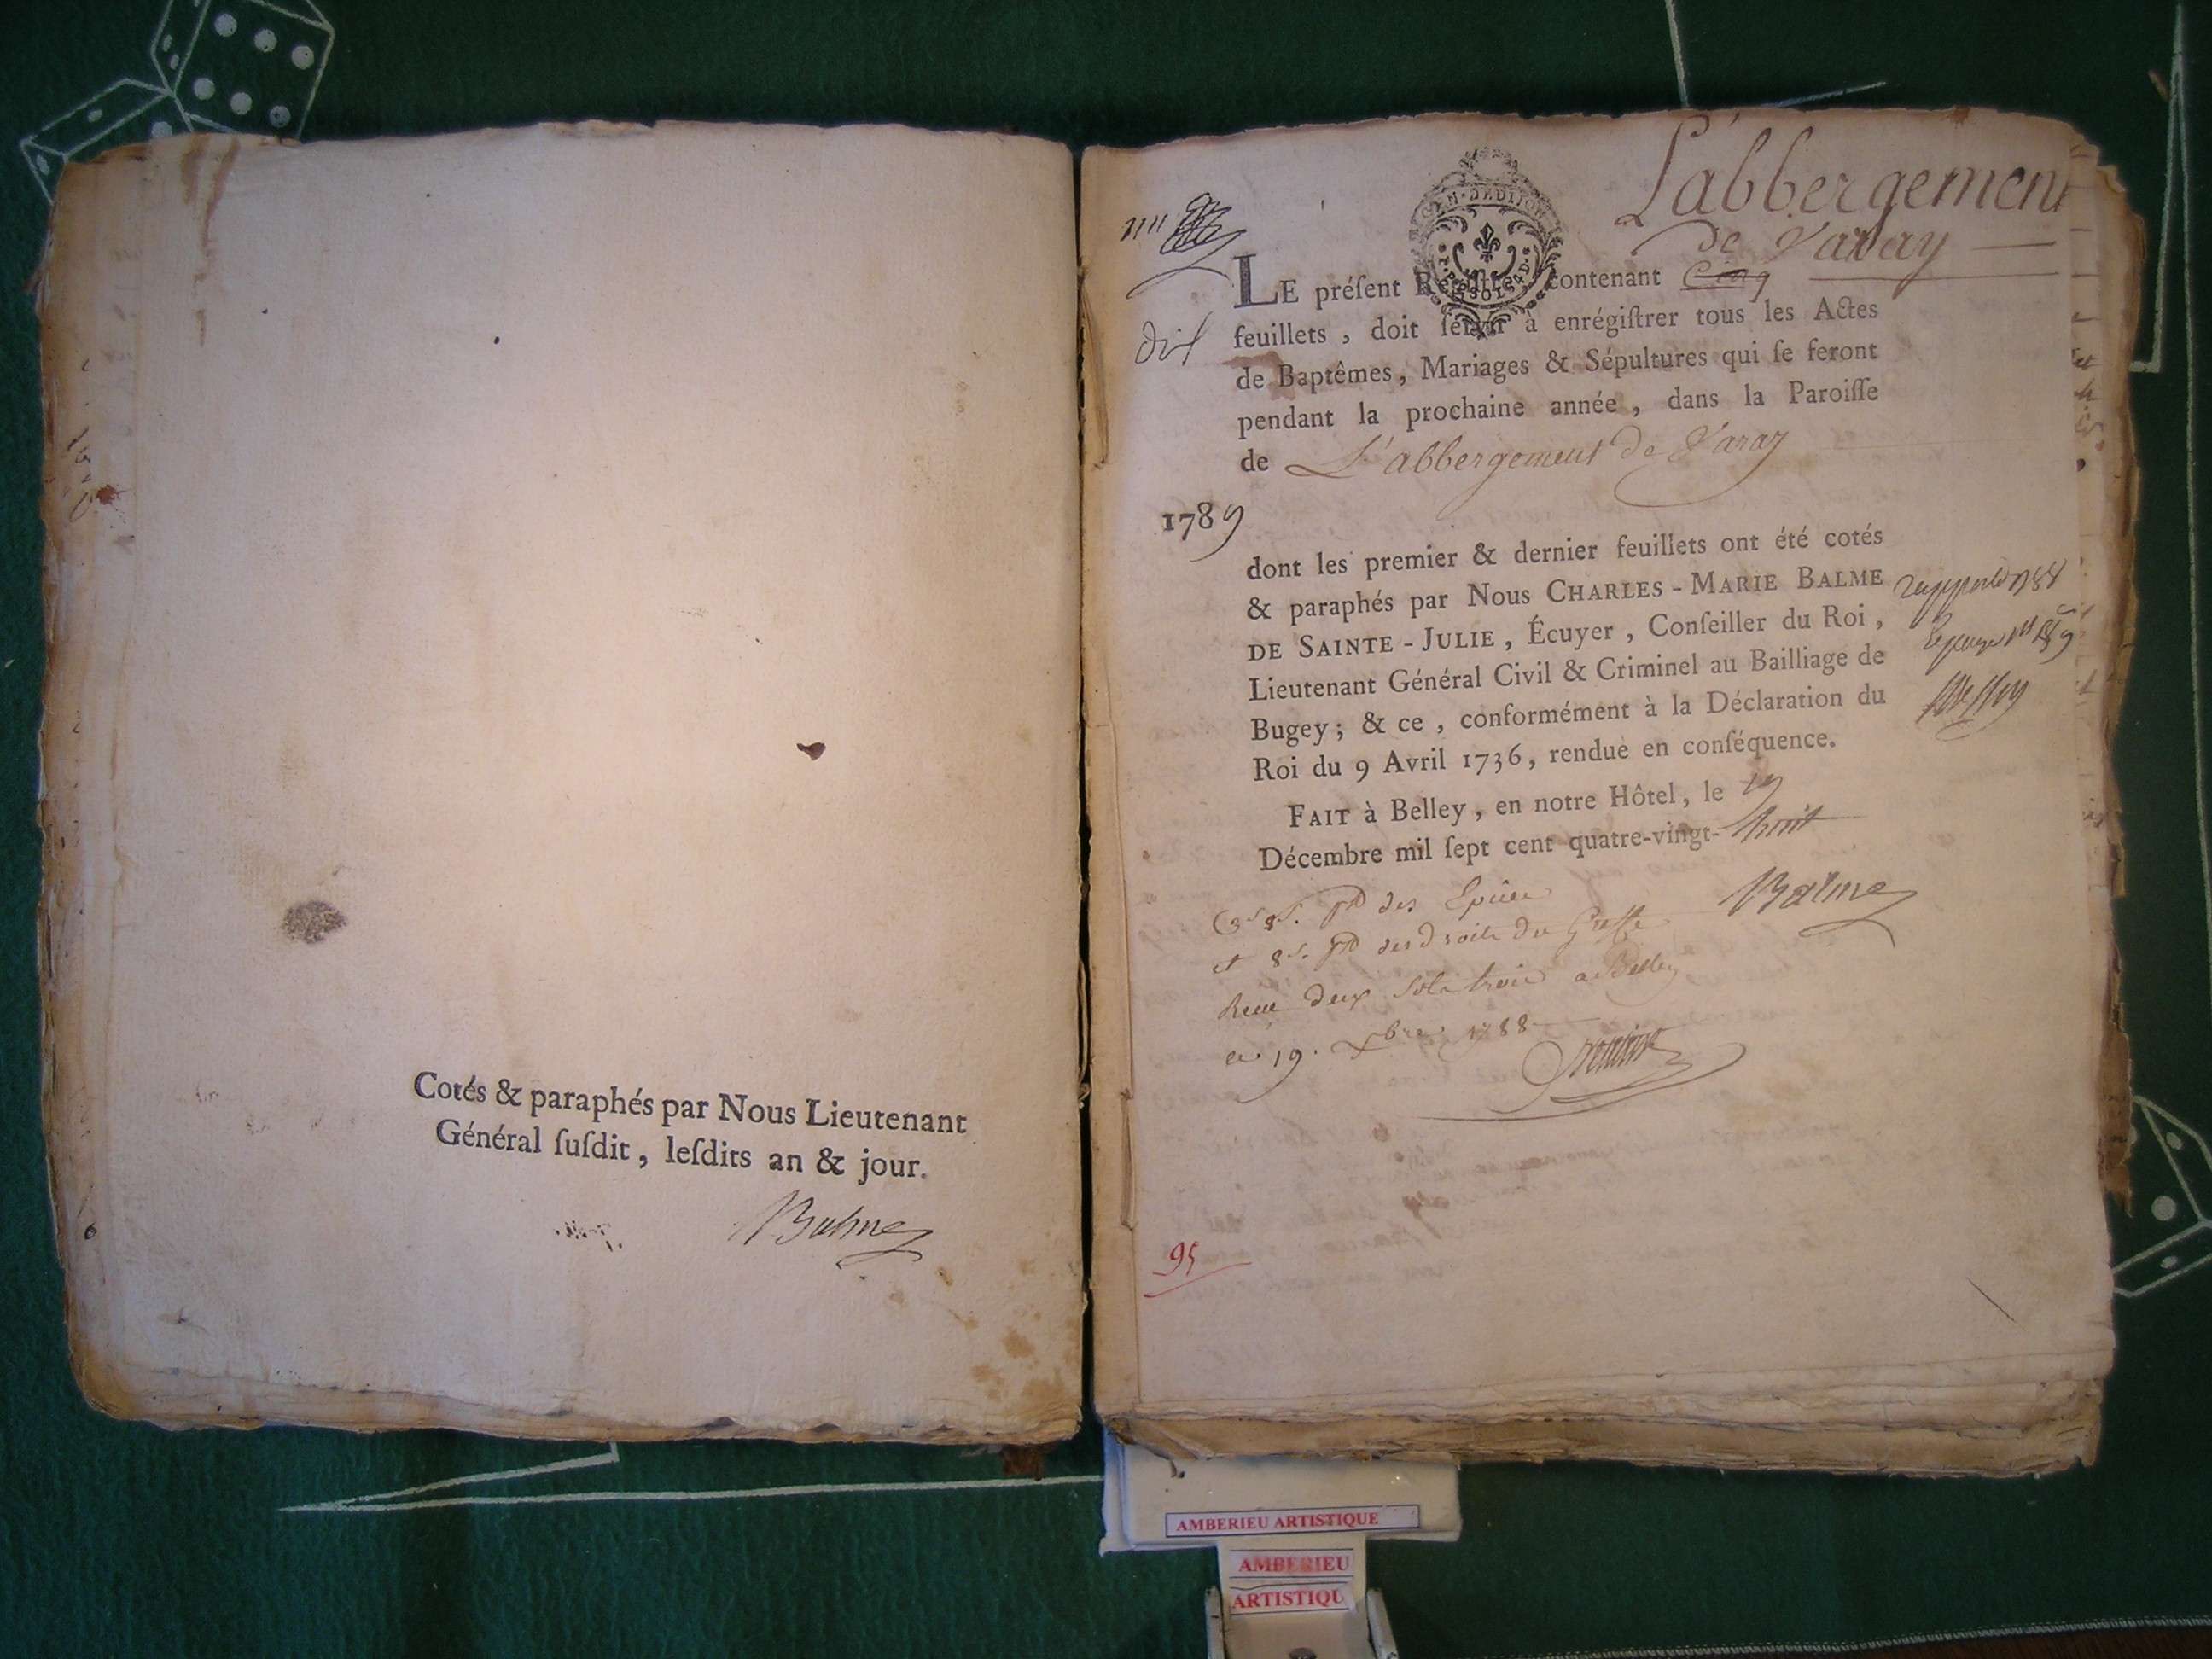 Cotés & paraphés par Nous Lieutenant
Général ſuſdit, leſdits an & jour.
Balme
L'abbergement
de Varay
GEN·DEDIJON
LE préſent Regiſtre, contenant Cinq
dix
feuillets, doit ſervir à enrégiſtrer tous les Actes
de Baptêmes, Mariages & Sépultures qui ſe feront
pendant la prochaine année, dans la Paroiſſe
de L'abbergement de Varay
1789
dont les premier & dernier feuillets ont été cotés
& paraphés par Nous CHARLES-MARIE BALME
DE SAINTE-JULIE, Écuyer, Conſeiller du Roi,
Lieutenant Général Civil & Criminel au Bailliage de
Bugey; & ce, conformément à la Déclaration du
Roi du 9 Avril 1736, rendue en conſéquence.
FAIT à Belley, en notre Hôtel, le 19
Décembre mil ſept cent quatre-vingt-huit
Balme
des Epices
et 8 s. des droits du Greffe
Receu deux sols trois a Belley
19. Xbre 1788
95
AMBERIEU ARTISTIQUE
AMBERIEU
ARTISTIQU